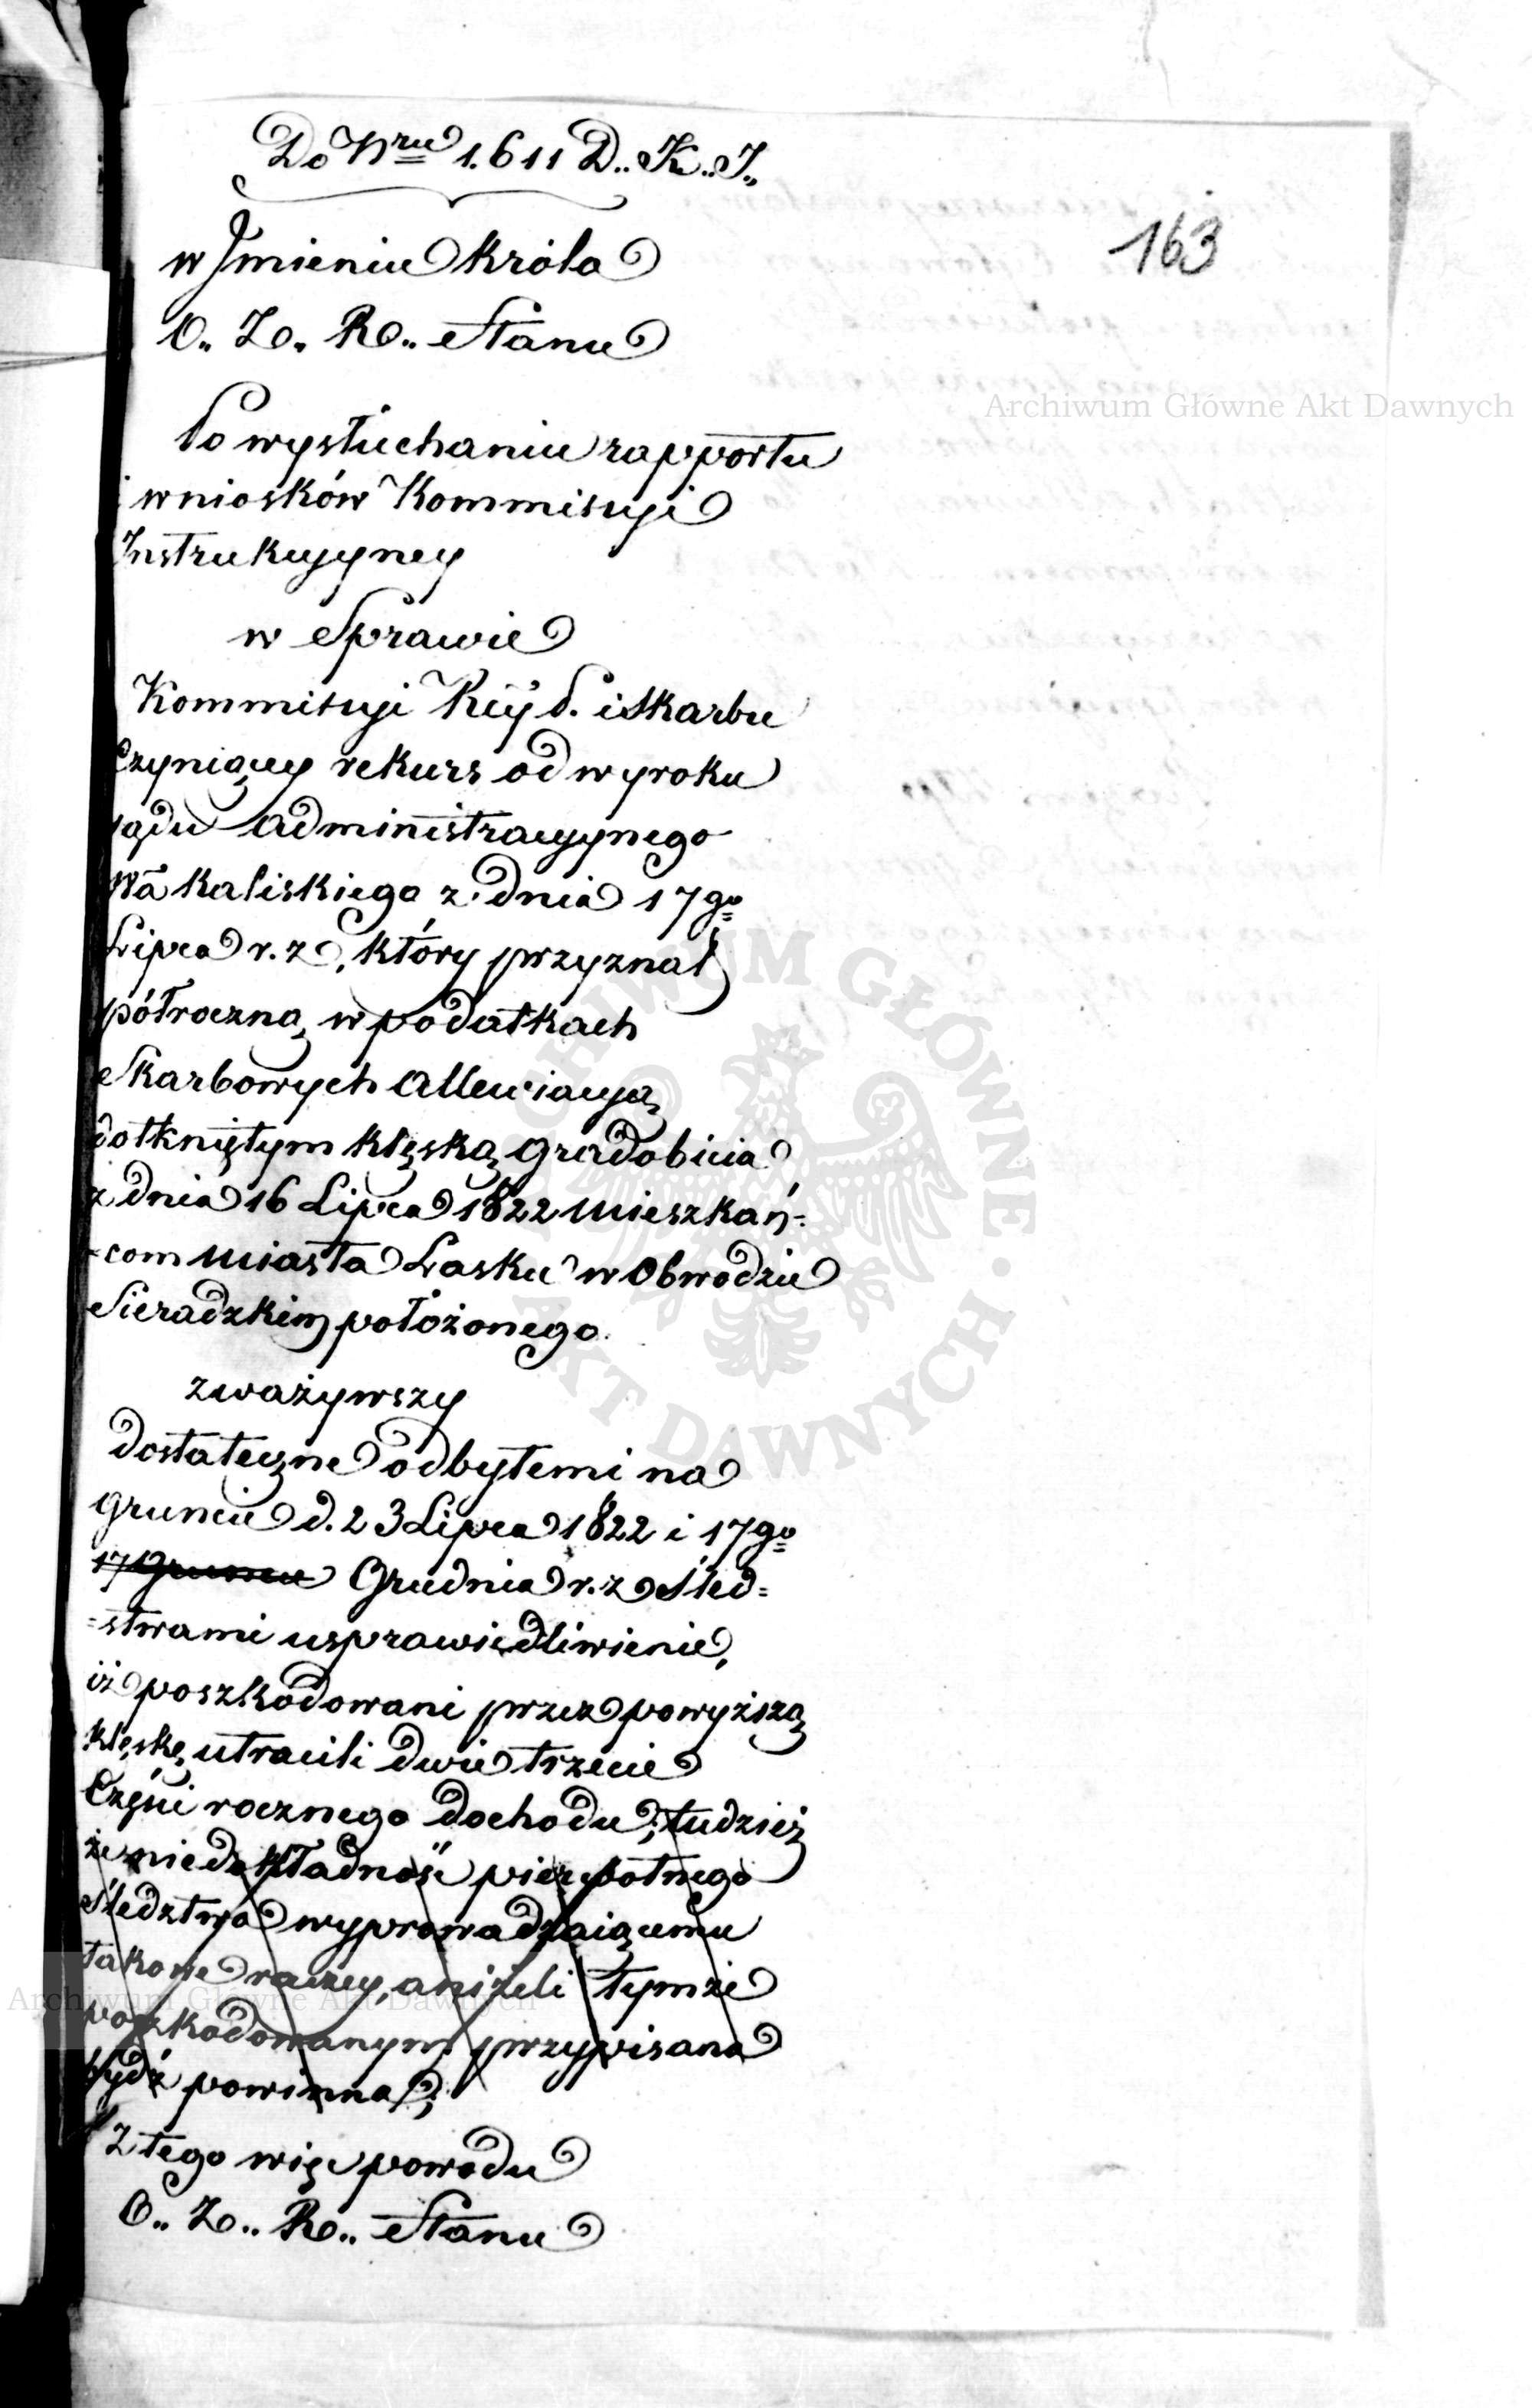 Do Nru 1.611 D.. K.. I..
163
w Imieniu Króla
O.. Z.. R.. Stanu
Po wysłuchaniu rapportu
i wniosków Kommissyi
Instrukcyyney
w Sprawie
Kommissyi R. Pÿ S. i Skarbu
Czyniącey rekurs od wyroku
sądu administracyynego
Wa Kaliskiego z dnia 17go
Lipca r. z., który przyznał
półroczną w podatkach
Skarbowych allewiacyą
dotkniętym klęską gradobicia
z dnia 16 Lipca 1822 Mieszkań=
=com Miasta Łasku w Obwodzie
Sieradzkim położonego.
zważywszy
dostateczne odbytemi na
gruncie d. 23 Lipca 1822 i 17go
17 Grudnia r. z. Śled=
=stwami usprawiedliwienie,
iż poszkodowani przez powyższą
klęskę utracili dwie trzecie
Części rocznego dochodu; tudzież
że niedokładność pierwotnego
Śledztwa wyprowadzaiącemu
takowe raczey, aniżeli tymże
poszkodowanym przypisana
bydź powinna;
Z tego więc powodu
O.. Z.. R.. Stanu
Archiwum Główne Akt Dawnych
ARCHIWUM GŁÓWNE · AKT DAWNYCH ·
Archiwum Główne Akt Dawnych